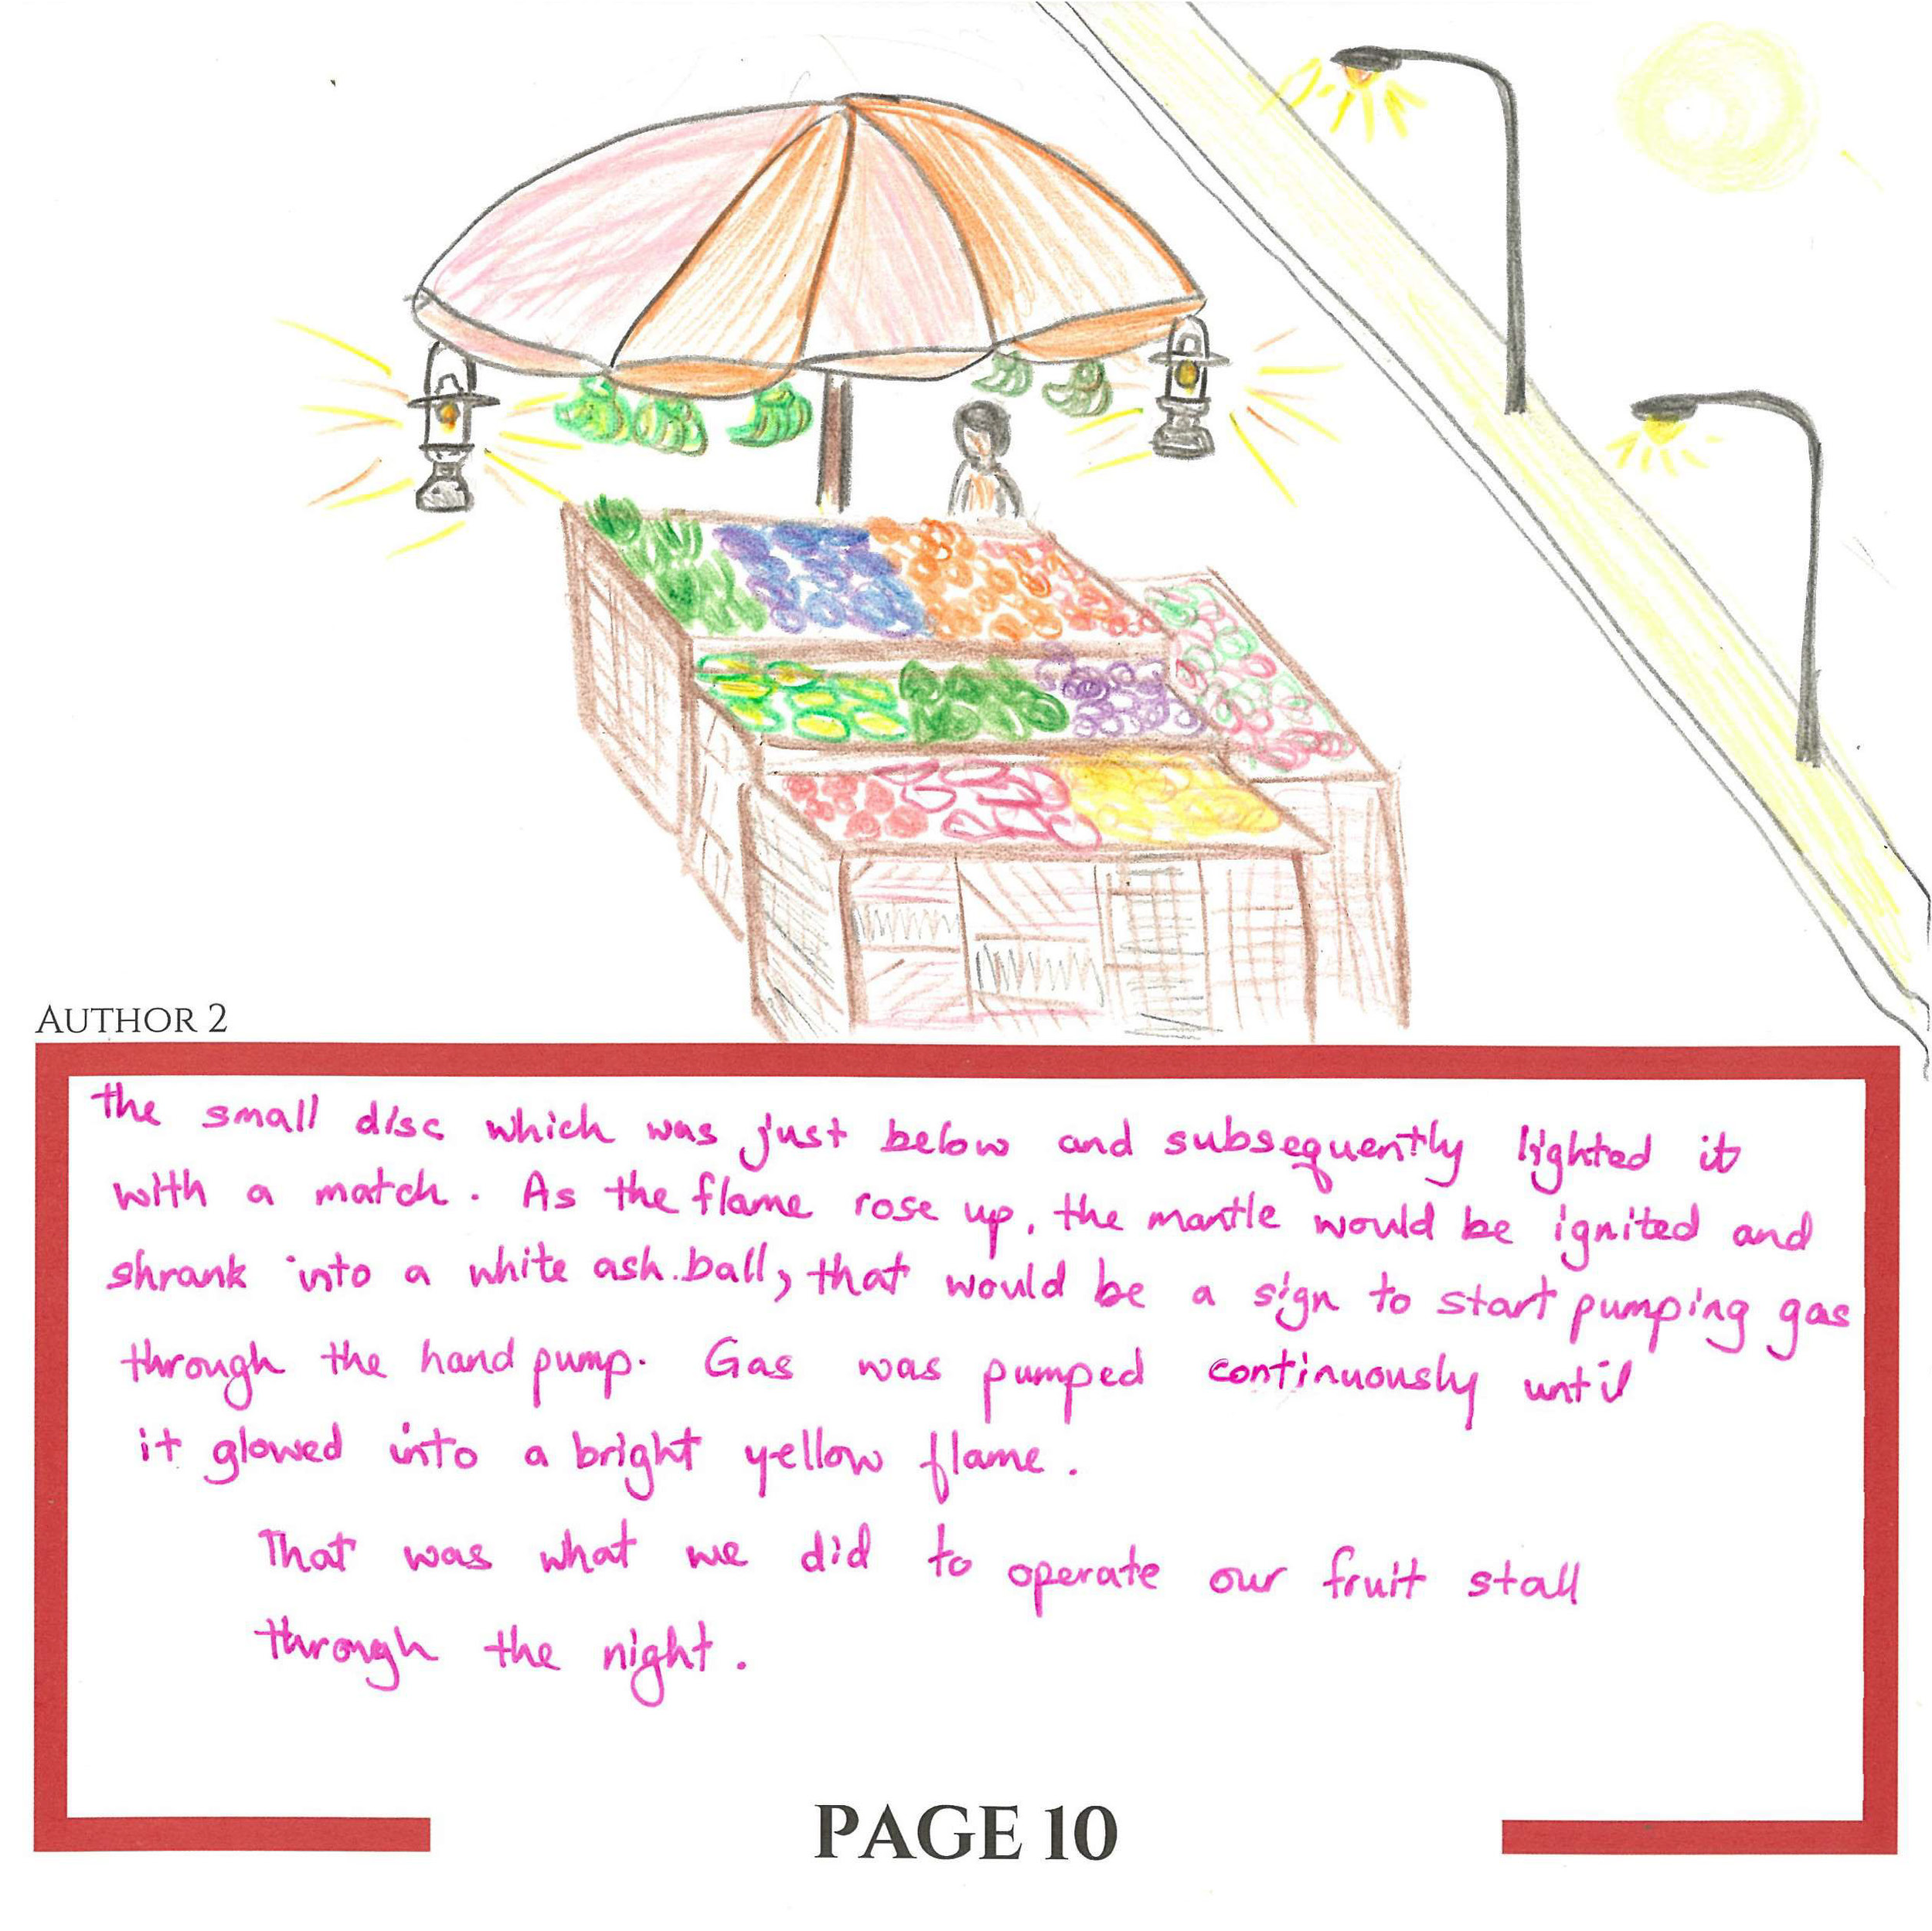 AUTHOR 2
the small disc which was just below and subsequently lighted it
with a match. As the flame rose up, the mantle would be ignited and
shrank into a white ash.ball, that would be a sign to start pumping gas
through the hand pump. Gas was pumped continuously until
it glowed into a bright yellow flame.
That was what we did to operate our fruit stall
through the night.
PAGE 10